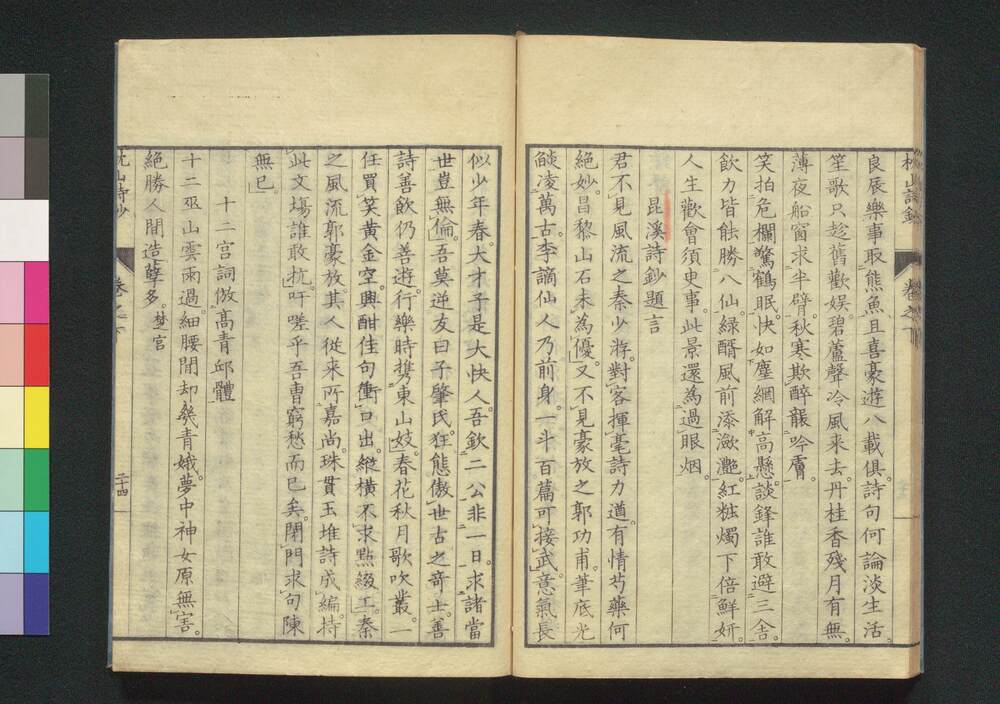 良辰樂事取熊魚且喜豪遊八載俱詩句何論淡生活
笙歌只趁舊歡娯碧蘆聲冷風来去丹桂香殘月有無
薄夜船窗求半臂秋寒欺醉襲吟膚
笑拍危欄驚鶴眠快如塵網解高懸談鋒誰敢避三舎
飲力皆能勝八仙綠醑風前添瀲灔紅粧燭下倍鮮妍
人生歡會須史事此景還為過眼烟
昆溪詩鈔題言
君不見風流之秦少游對客揮毫詩力遒有情芍藥何
絶妙昌黎山石未為優又不見豪放之郭功甫筆底光
燄凌萬古李謫仙人乃前身一斗百篇可接武意氣長
似少年春大才子是大快人吾欽二公非一日求諸當
世豈無倫吾莫逆友曰子肇氏狂態傲世古之奇士善
詩善飲仍善遊行樂時携東山妓春花秋月歌吹叢一
任買笑黄金空興酣佳句衝口出縱橫不求點綴工秦
之風流郭豪放其人從来所嘉尚珠貫玉堆詩成編持
此文場誰敢抗吁嗟乎吾曹窮愁而已矣閉門求句陳
無已
十二宮詞倣高青邱體
十二巫山雲雨過細腰閒却幾青娥夢中神女原無害
絶勝人間造孽多楚宮
枕山詩鈔
卷之下
二十四